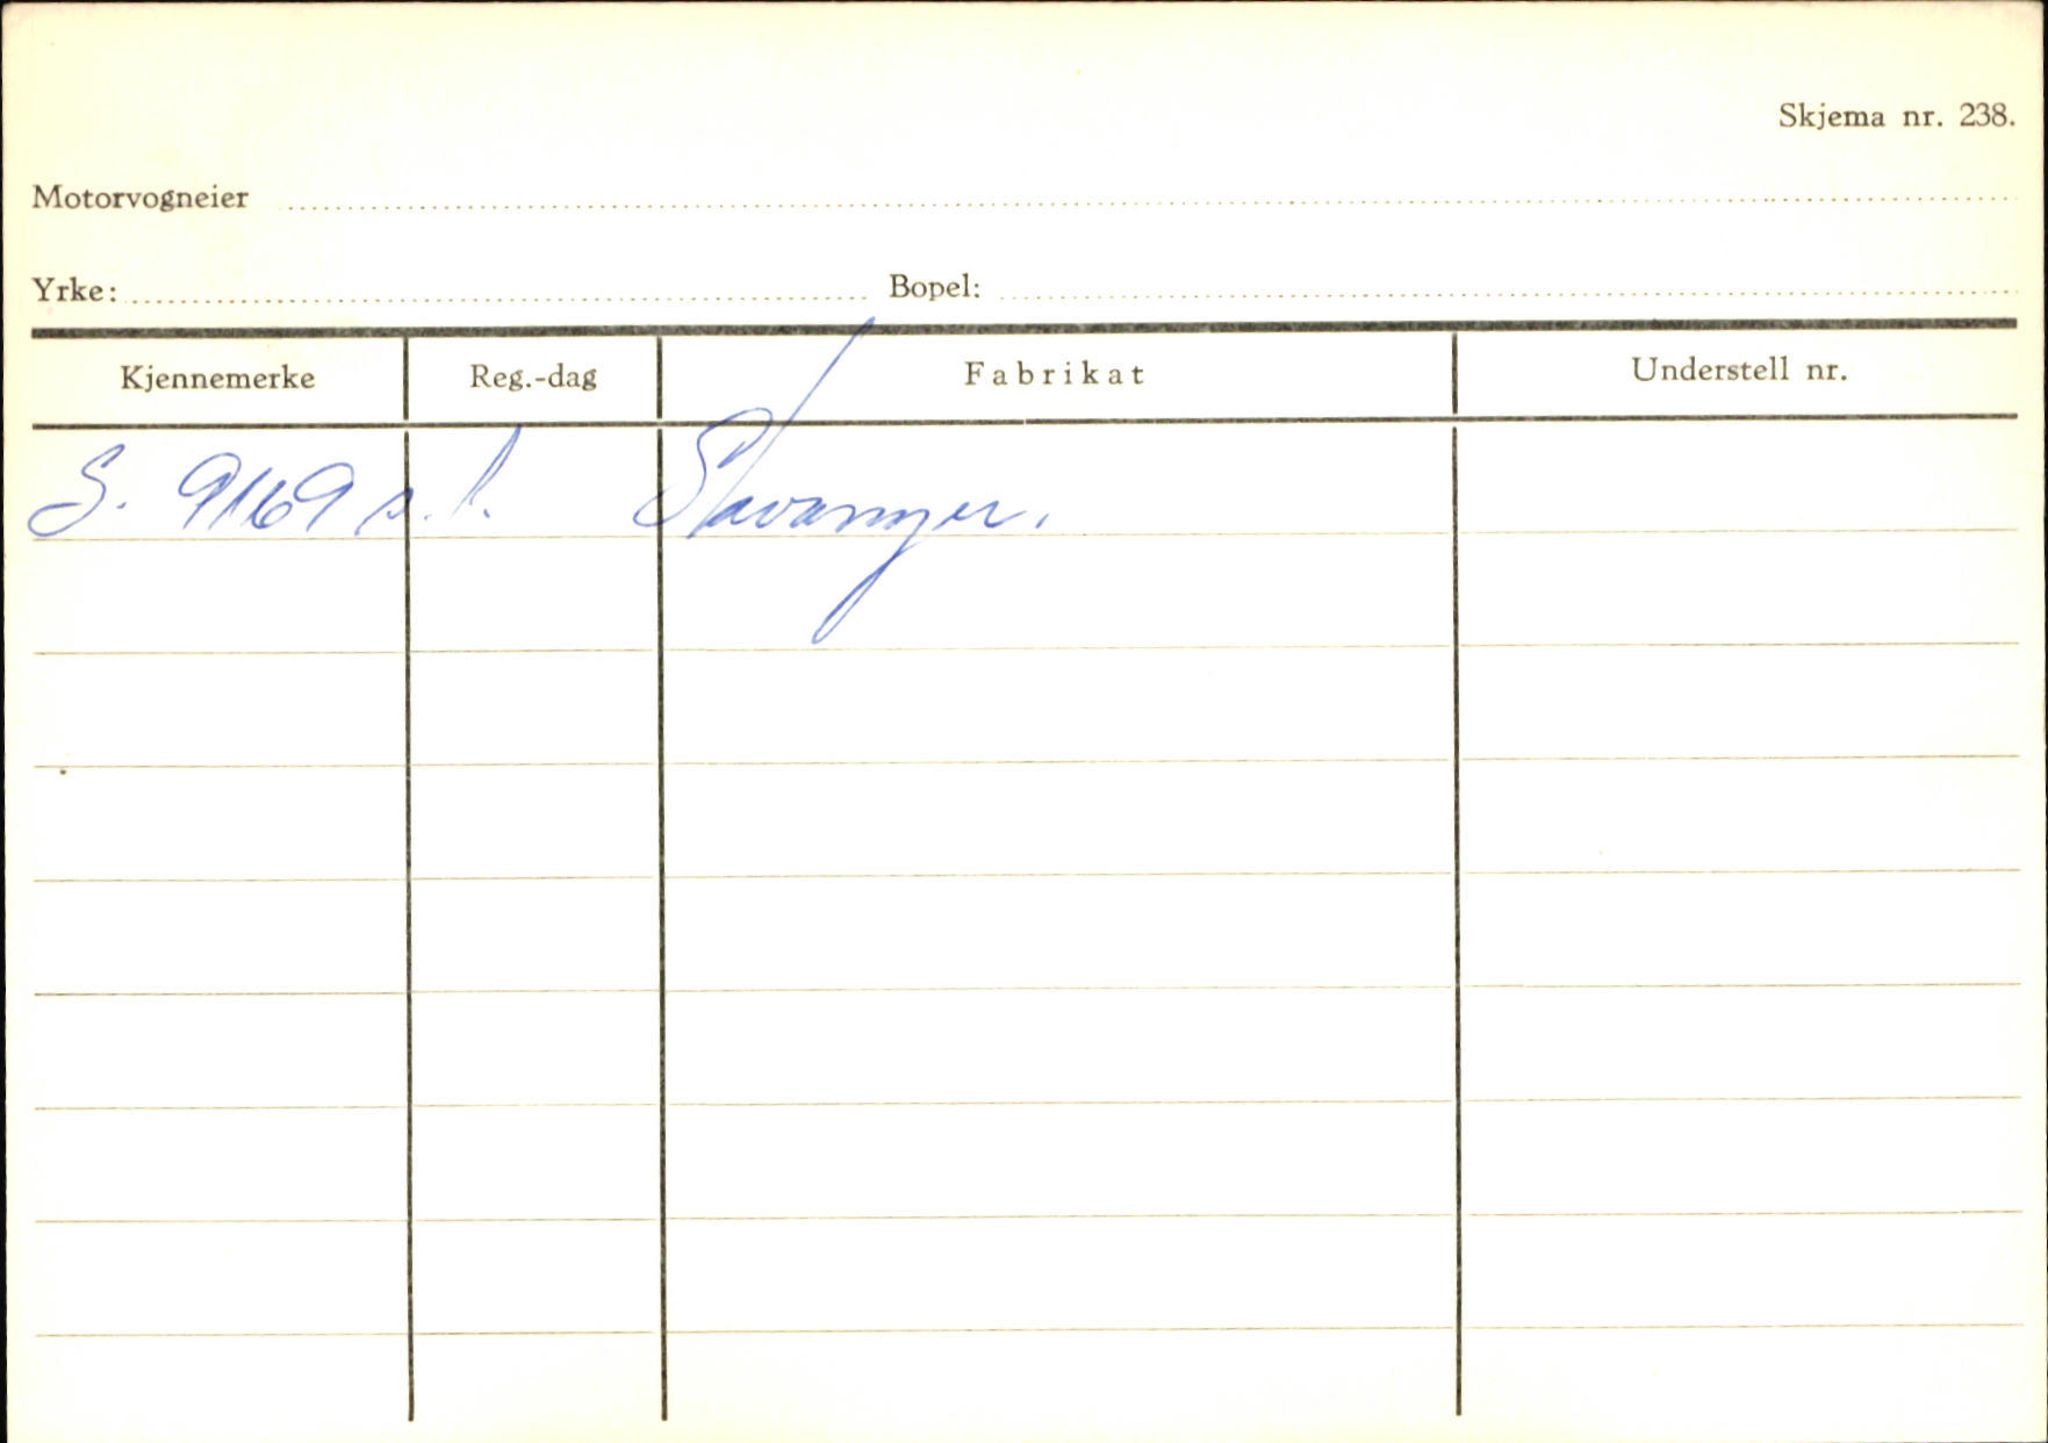 Skjema nr. 238.
Motorvogneier
Yrke: Bopel:
Kjennemerke Reg.-dag Fabrikat Understell nr.
S. 9169 s. l. Stavanger.